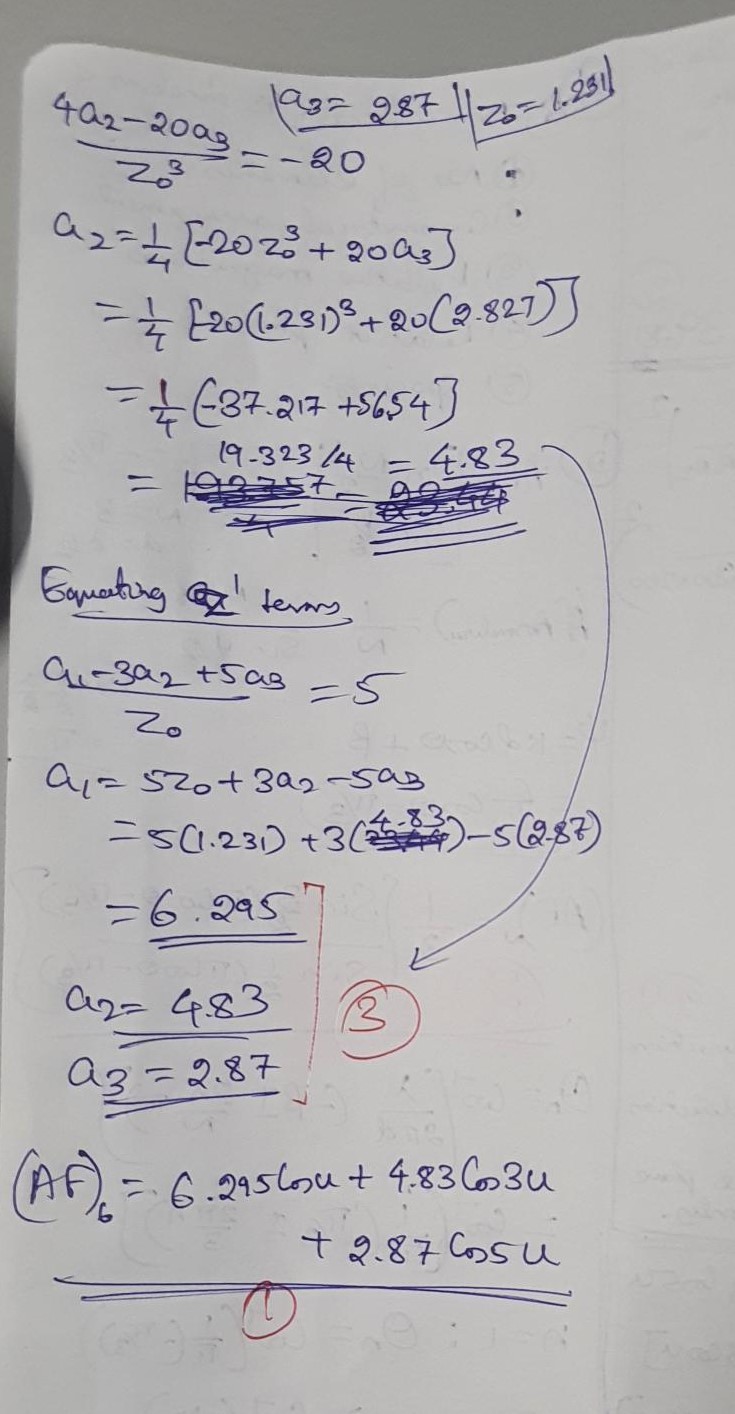 a3 = 2.87 Z0 = 1.231
4a2 - 20a3 / Z0^3 = -20
a2 = 1/4 [-20 Z0^3 + 20a3]
= 1/4 [-20(1.231)^3 + 20(2.827)]
= 1/4 (-37.217 + 56.54]
= 19.323/4 = 4.83
Equating terms
a1 - 3a2 + 5a3 / Z0 = 5
a1 = 5Z0 + 3a2 - 5a3
= 5(1.231) + 3(4.83) - 5(2.87)
= 6.295
a2 = 4.83
3
a3 = 2.87
(AF)6 = 6.295 Cos u + 4.83 Cos 3u
+ 2.87 Cos 5u
1